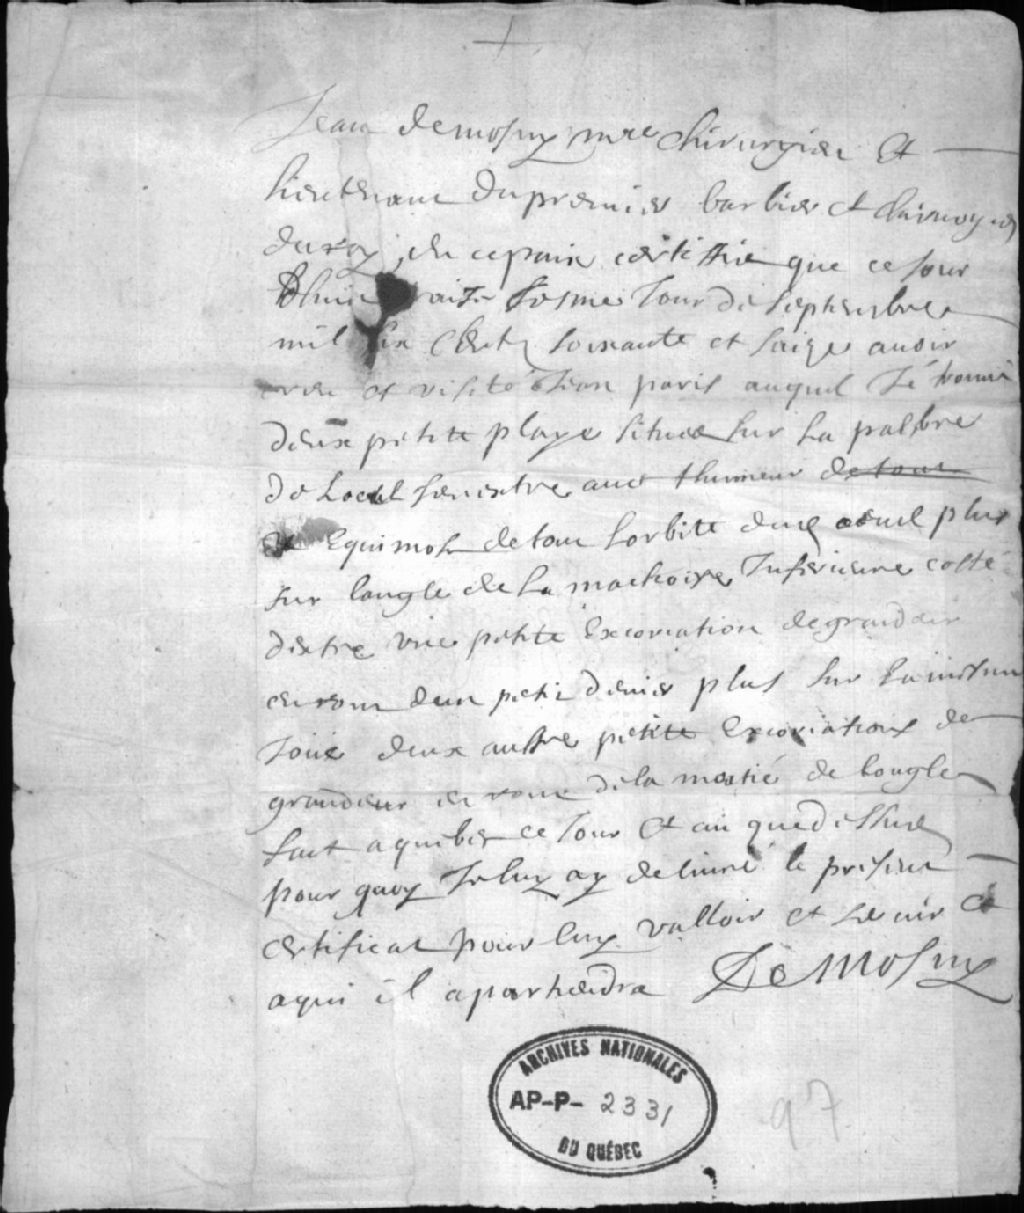 Jean demosny mre chirurgien Et
lieutenant du premier barbier et chirurgien
du roy, en ce pair certiffie que ce jour
dhuie jour de septembre
mil six Cents soixante et saize avoir
veu et visité Jean paris auquel Jé trouvé
deux petitte playe située sur La palbre
de Loeul senextre avec thumeur de tour
Et Equimose de tour Lorbitte dud oeuil plus
sur langle de La machoire Inferieure costé
dextre une petite Excoriation de grandeur
environ dun petit denier plus sur La mesme
Joüe deux autre petitte Excoriations de
grandeur environ de la moitié de longle
fait a quibec ce Jour Et an que dessus
pour quoy Je luy ay delivré le present
certificat pour luy valloir et servir Ce
a qui il apartiendra De Mosny
ARCHIVES NATIONALES
AP-P- 2331
DU QUÉBEC
97